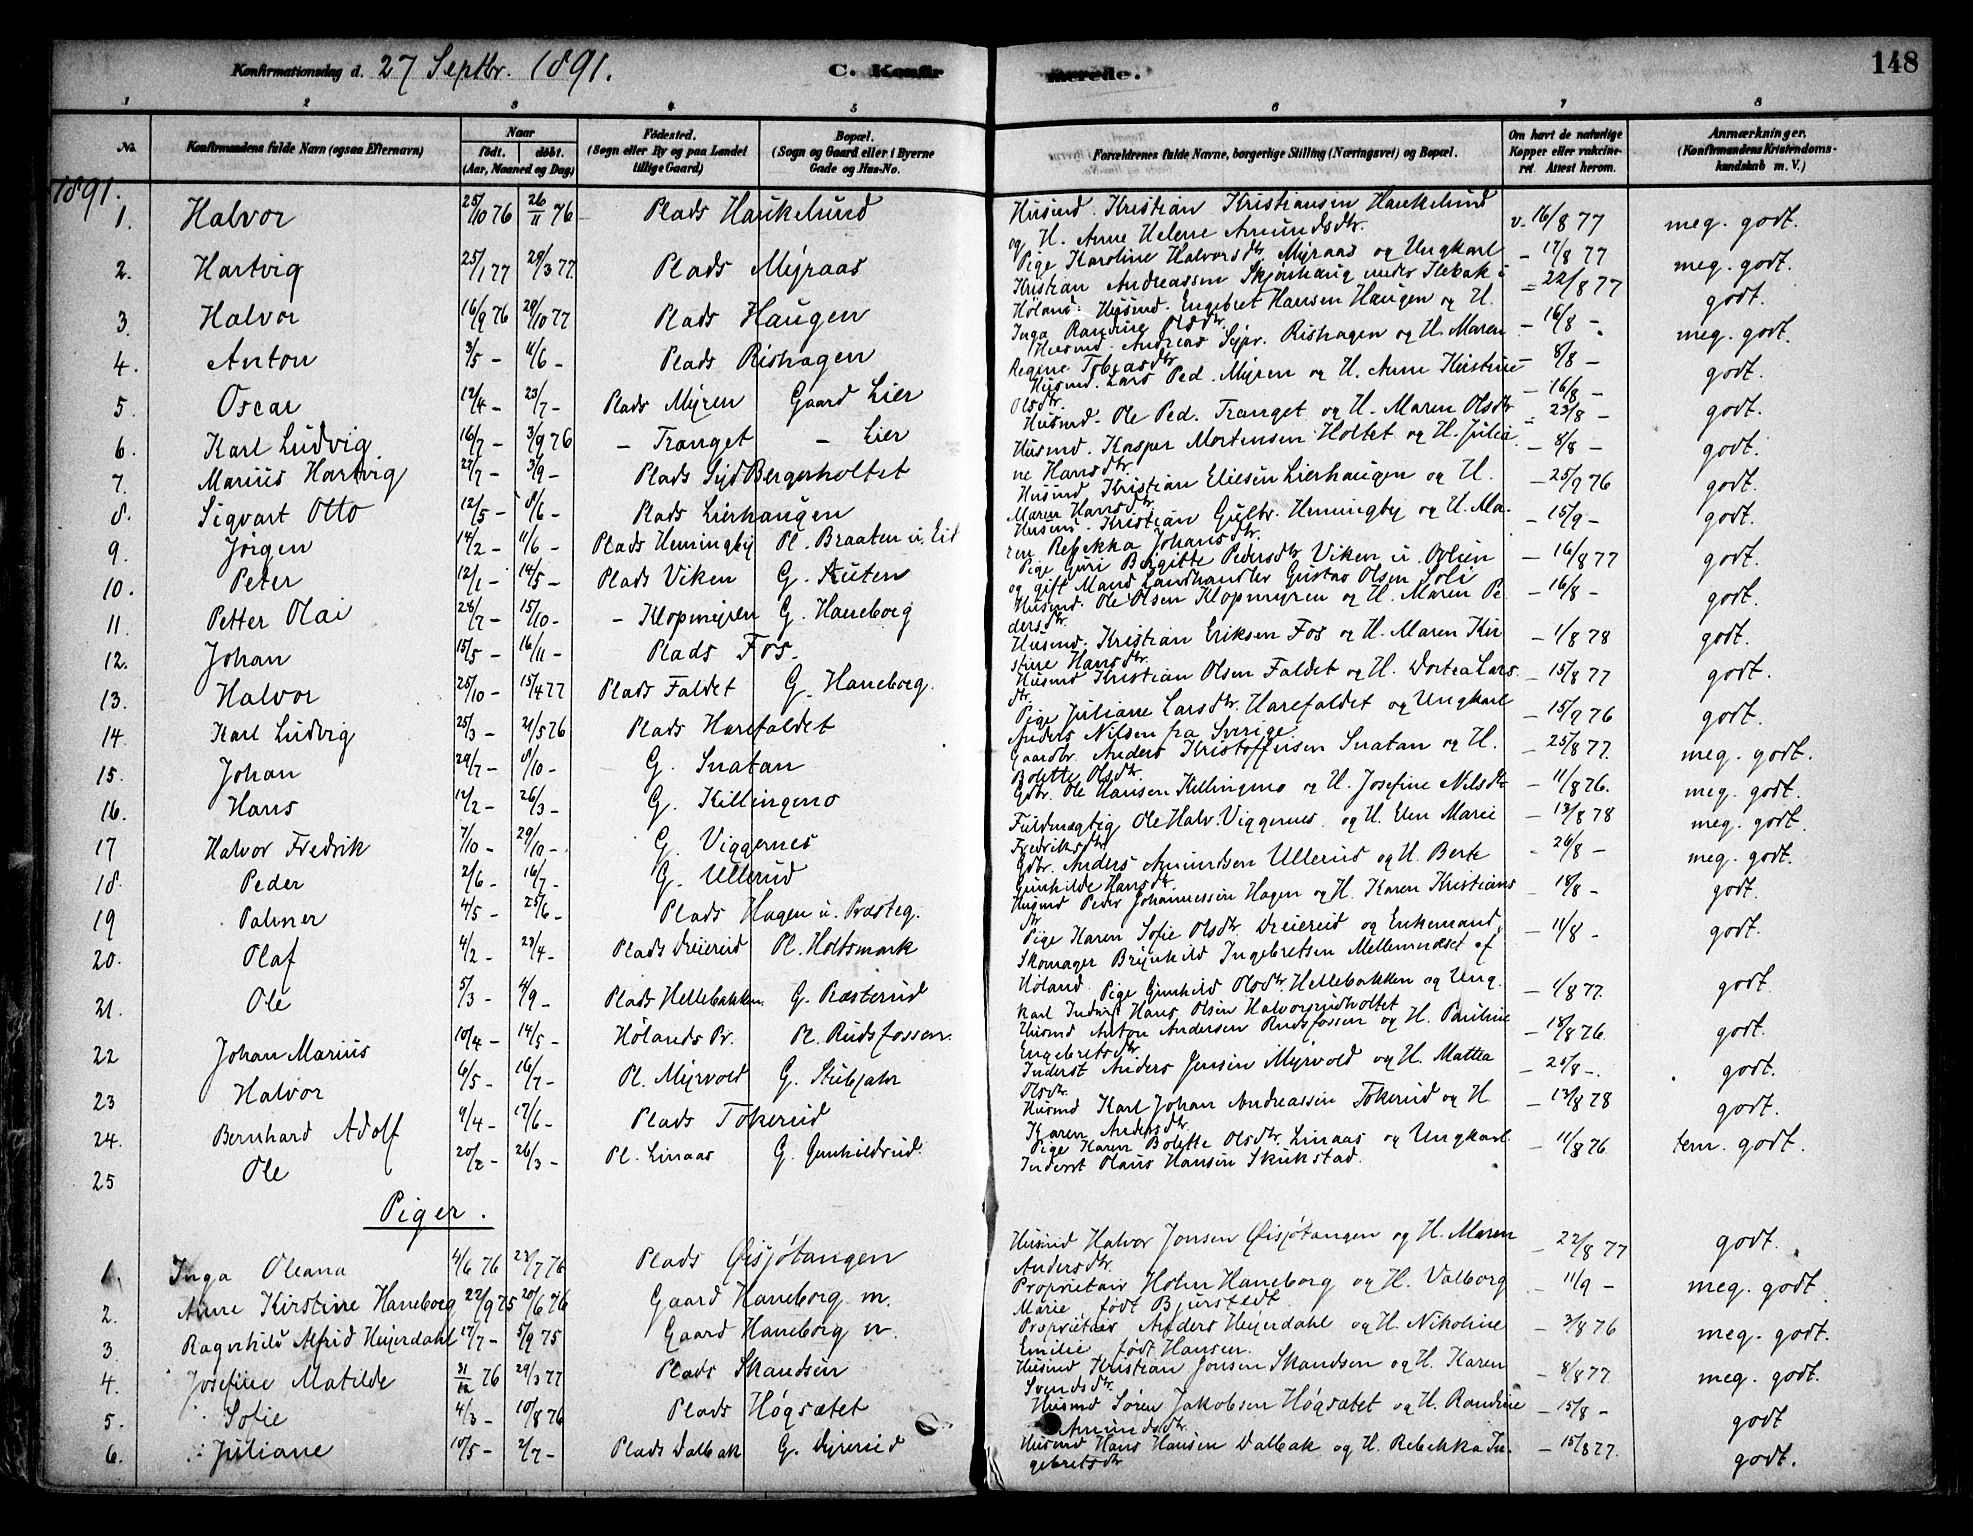 Konfirmationsdag d. 27 Septbr. 1891. C. Konfirmerede. 148
1 2 3 4 5 6 7 8
No. Konfirmandens fulde Navn (ogsaa Efternavn) Naar født. døbt. (Aar, Maaned og Dag) Fødested. (Sogn eller By og paa Landet tillige Gaard) Bopæl. (Sogn og Gaard eller i Byerne Gade og Hus-No. Forældrenes fulde Navne, borgerlige Stilling (Næringsvei) og Bopæl. Om havt de naturlige Kopper eller vakcineret Attest herom. Anmærkninger. (Konfirmandens Kristendomskundskab m. V.)
1891.
1. Halvor 25/10 76 26/11 76 Plads Haukelund Husmd. Kristian Kristiansen Haukelund og H. Anne Helene Amundsdtr. v. 16/8 77 meg. godt.
2. Hartvig 25/1 77 28/3 77 Plads Myraas Pige Karoline Halvorsdtr. Myraas og Ungkarl Kristian Andreassen Skjønhaug under Ilebæk i Høland: – 17/8 77 meg. godt.
3. Halvor 16/9 76 29/10 77 Plads Haugen Husmd. Engebret Hansen Haugen og H. Inga Randine Olsdtr. = 22/8 77 godt.
4. Anton 3/5 – 11/6 – Plads Rishagen Husmd. Andreas Sypr. Rishagen og H. Maren Regine Tobiasdtr. – 16/8 – meg. godt.
5. Oscar 12/4 – 23/7 – Plads Myren Gaard Lier Husmd. Lars Ped. Myren og H. Anne Kirstine Olsdtr. – 8/8 – godt.
6. Karl Ludvig 16/7 – 3/9 76 – Tranget – Lier Husmd. Ole Ped. Tranget og H. Maren Olsdtr – 16/8 – godt.
7. Marius Hartvig 27/7 – 3/9 – Plads Syd Bergerholtet Husmd. Kasper Mortensen Holtet og H. Juliane Hansdtr. – 23/8 – godt.
8. Sigvart Otto 12/5 – 8/6 – Plads Lierhaugen Husmd Kristian Eliesen Lierhaugen og H. Maren Hansdtr. – 8/8 – godt.
9. Jørgen 14/2 – 11/6 – Plads Hemingby Pl. Braaten u. Eid Husmd. Kristian Gulbr. Hemingby og H. Maren Rebekka Johansdtr. – 25/9 76 godt.
10. Peter 12/1 – 14/5 – Plads Viken G. Auten Pige Guri Birgitte Pedersdtr Viken u. og gift Mand Landhandler Gustav Olsen – 15/9 – godt.
11. Petter Olai 28/7 – 15/10 – – Klopmyren G. Haneborg Husmd. Ole Olsen Klopmyren og H. Maren Pedersdtr. – 16/8 77 godt.
12. Johan 15/5 – 16/11 – Plads Fos. Husmd. Kristian Eriksen Fos og H. Maren Kirstine Hansdtr. – 16/8 – godt.
13. Halvor 25/10 – 15/4 77 Plads Faldet G. Haneborg. Husmd Kristian Olsen Faldet og H. Dortea Larsdtr. – 1/8 78 godt.
14. Karl Ludvig 25/3 – 21/5 76 Plads Harefaldet Pige Juliane Larsdtr. Harefaldet og Ungkarl Anders Nilsen fra Sverige. – 15/8 77 godt.
15. Johan 29/7 – 8/10 – G. Snatan Gaardbr. Anders Kristoffersen Snatan og H. Bolette Olsdtr. – 15/9 76 godt.
16. Hans 12/2 – 26/3 – G. Killingmo Gdbr. Ole Hansen Killingmo og H. Josefine Nilsdtr – 25/8 77. meg. godt.
17 Halvor Fredrik 7/10 – 29/10 – G. Viggernes Fuldmægtig Ole Halv. Viggernes og H. Elen Marie Fredriksdtr – 11/8 76. meg. godt.
18. Peder 2/6 – 16/7 – G. Ullerud Gdbr. Anders Amundsen Ullerud og H. Berte Gunhilde Hansdtr. – 13/8 78 meg. godt.
19 Palmer 4/5 – 25/6 – Plads Hagen u. Præsteg. Husmd Peder Johannessen Hagen og H. Karen Kristiansdtr – 26/8 – meg. godt.
20. Olaf 4/2 – 23/4 – Plads Dreierud Pl. Holtsmark Pige Karen Sofie Olsdtr. Dreierud og Enkemand, Skomager Brynhild Ingebretsen Mellemnæset af Høland. – 18/8 – godt.
21. Ole 5/3 – 4/9 – Plads Hellebækken G. Præsterud Pige Gunhild Olsdtr. Hellebækken og Ungkarl Inderst Hans Olsen Halvorsrudholtet – 11/8 – godt.
22 Johan Marius 10/4 – 14/5 – Hølands Pr. Pl. Rudsfossen. Husmd Anton Andersen Rudsfossen og H. Pauline Engebretsdtr – 4/8 77. godt.
23 Halvor 6/5 – 16/7 – Pl. Myrvold G. Stubjahr Inderst Anders Jensen Myrvold og H. Mattea Olsdtr. – 18/8 76. godt.
24. Bernhard Adolf 9/4 – 17/6 – Plads Tokerud Husmd Karl Johan Andreassen Tokerud og H Karen Andersdtr. – 25/8 – godt. – 13/8 78 godt.
25 Ole 20/2 – 26/3 – Pl. Linaas G. Gunhildrud. Pige Karen Bolette Olsdtr. Linaas og Ungkarl Inderst Olaus Hansen Skukstad. – 11/8 76 tem. godt.
Piger.
1. Inga Oleana 4/6 76 23/7 76 Plads Øisjøtangen Husmd Halvor Jonsen Øisjøtangen og H. Maren Andersdtr. – 22/8 77 godt.
2. Anne Kirstine Haneborg 22/9 75 20/6 76 Gaard Haneborg m. Proprietær Holm Haneborg og H. Valborg Marie født Bjurstedt. – 11/9 – meg. godt.
3. Ragnhild Alfrid Heyerdahl 17/7 – 5/9 75 Gaard Haneborg n. Proprietær Anders Heyerdahl og H. Nikoline Emilie født Hansen. – 3/8 76 meg. godt.
4. Josefine Matilde 31/12 76 29/3 77 Plads Skandsen Husmd Kristian Jonsen Skandsen og H. Karen Svendsdtr. – 8/8 77 meg. godt.
5. Sofie 4/3 – 10/8 76 Plads Høgsætet Husmd Søren Jakobsen Høgsætet og H. Randine Amundsdtr. – 15/8 – godt
6. Juliane 10/5 – 2/7 – Plads Dalbæk G. Dyrerud Husmd Hans Hansen Dalbak og H. Rebekka Ingebretsdtr – 15/8 77. godt.